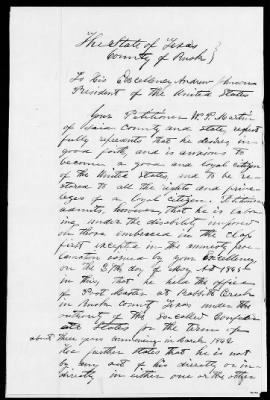 The State of Texas }
County of Rusk }
To his Excellency Andrew Johnson
President of the United States
Your Petitioner W. P. Martin
of said County and state, respect
fully represents that he desires in
good faith, and is anxious to
become a good and loyal citizen
of the United States and to be re-
stored to all the rights and privi-
leges of a loyal citizen. Petitioner
admits, however, that he is labor-
ing under the disability imposed
on those embraced in the class
first excepted in the amnesty proc-
lamation issued by your Excellency
on the 29th day of May AD 1865
in this, that he held the office
of Post Master at Rabbit Creek
in Rusk County Texas under the
authority of the So called Confeder-
ate States for the term of
about three years commencing in March 1862
He further states that he is not
by any act of his directly or in-
directly in either one or the other